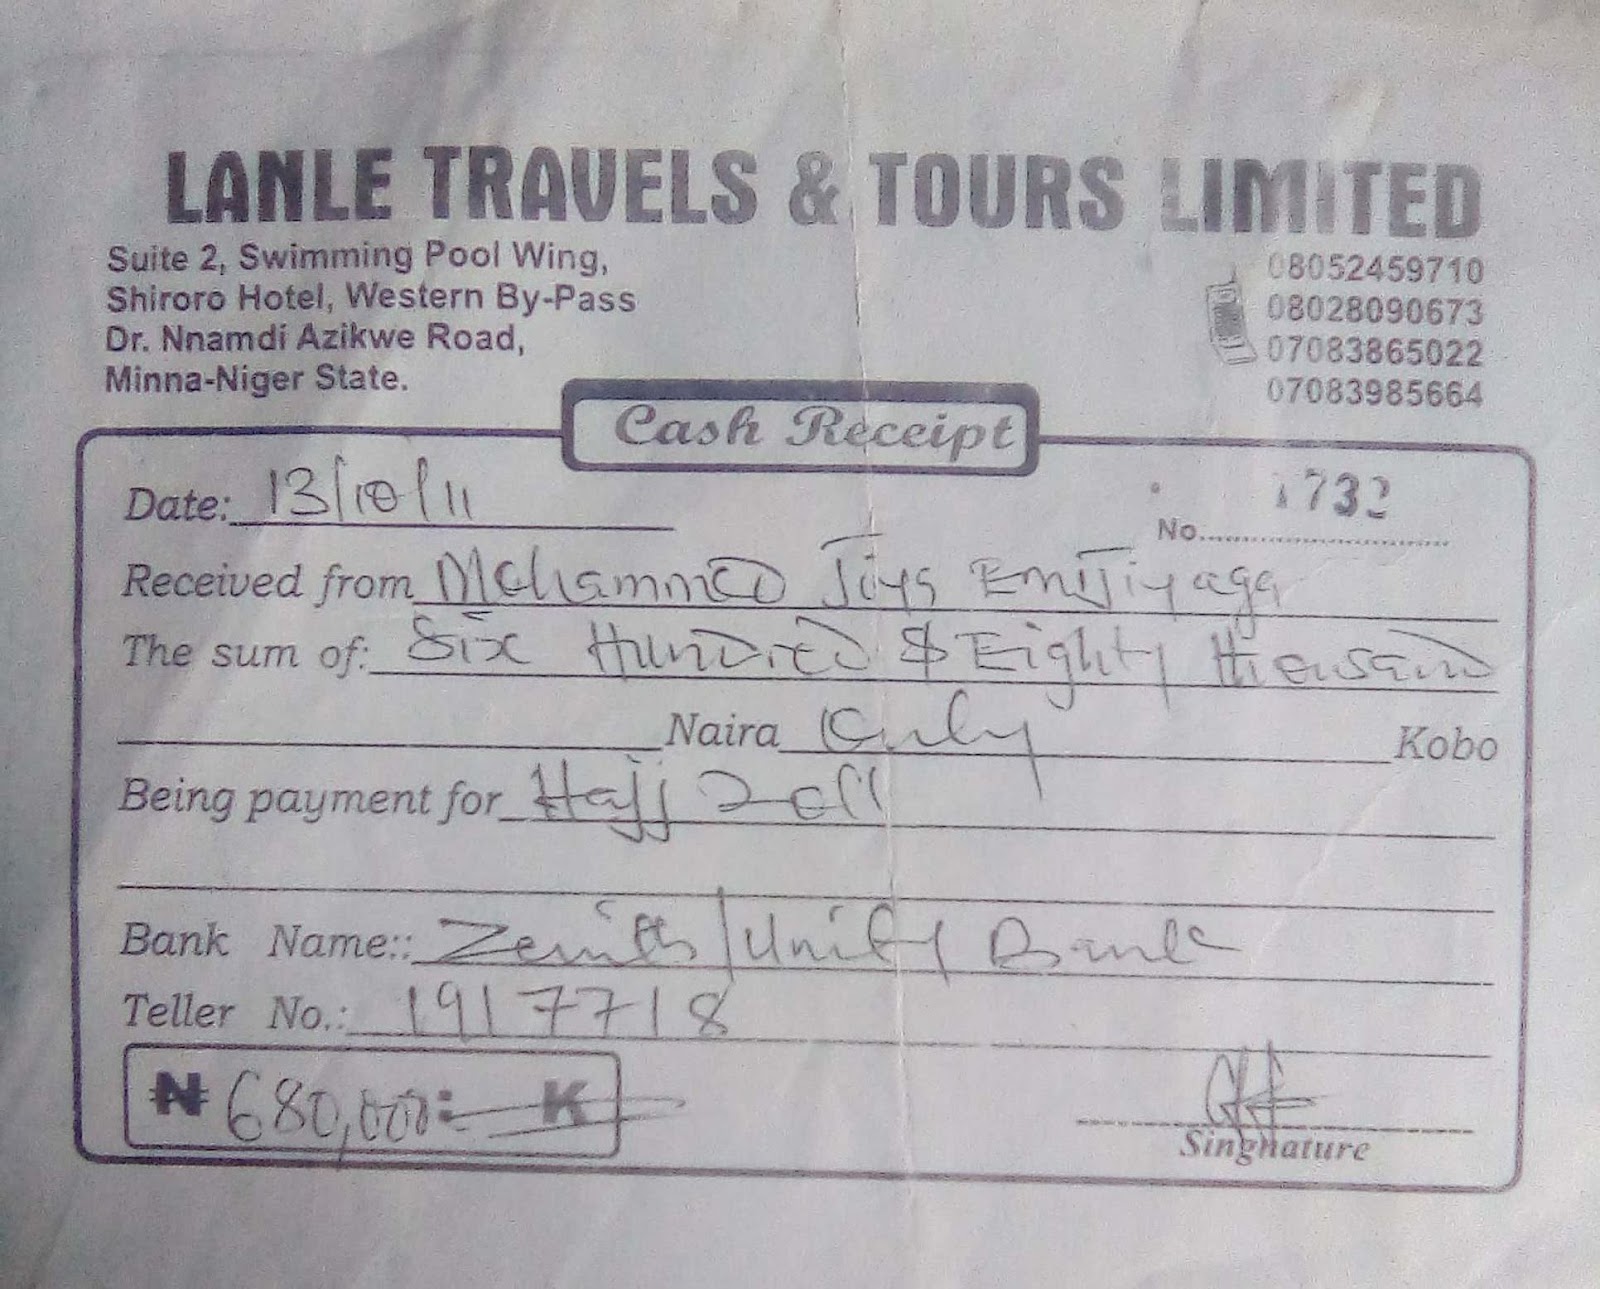 LANLE TRAVELS & TOURS LIMITED
Suite 2, Swimming Pool Wing,
Shiroro Hotel, Western By-Pass
Dr. Nnamdi Azikwe Road,
Minna-Niger State.
08052459710
08028090673
07083865022
07083985664
Cash Receipt
Date: 13/10/11
No. 1732
Received from Mohammed Jiya Emitiyaga
The sum of: Six Hundred & Eighty thousand
Naira Only Kobo
Being payment for Hajj 2011
Bank Name:: Zenith/Unity Bank
Teller No.: 19177718
₦ 680,000: K
Singnature